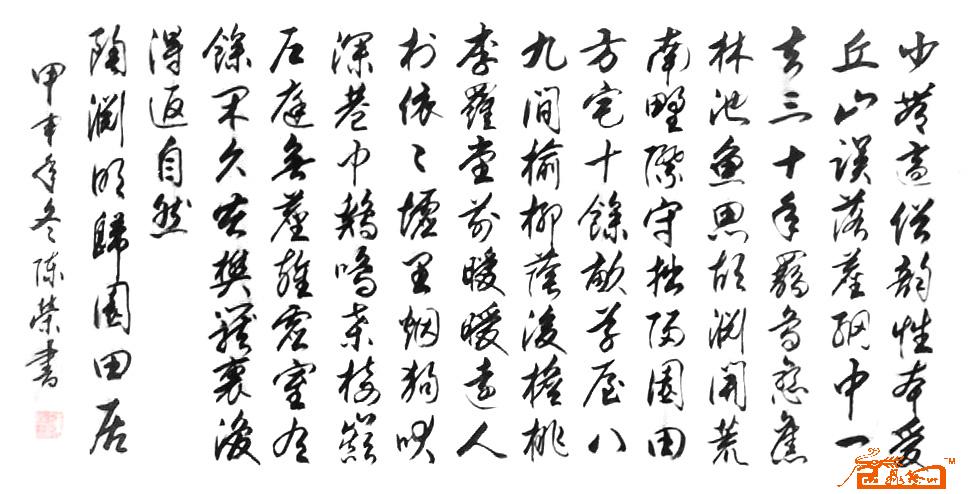 少無適俗韵性本愛
丘山誤落塵網中一
去三十年羈鳥戀舊
林池魚思故淵開荒
南野際守拙歸園田
方宅十餘畝草屋八
九間榆柳蔭後檐桃
李羅堂前曖曖遠人
村依〻墟里烟狗吠
深巷中鷄鳴桑樹巔
户庭無塵雜虛室有
餘閑久在樊籠裏復
得返自然
陶淵明歸園田居
甲申年冬陳榮書